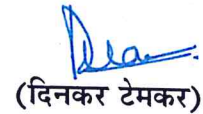 (दिनकर टेमकर)